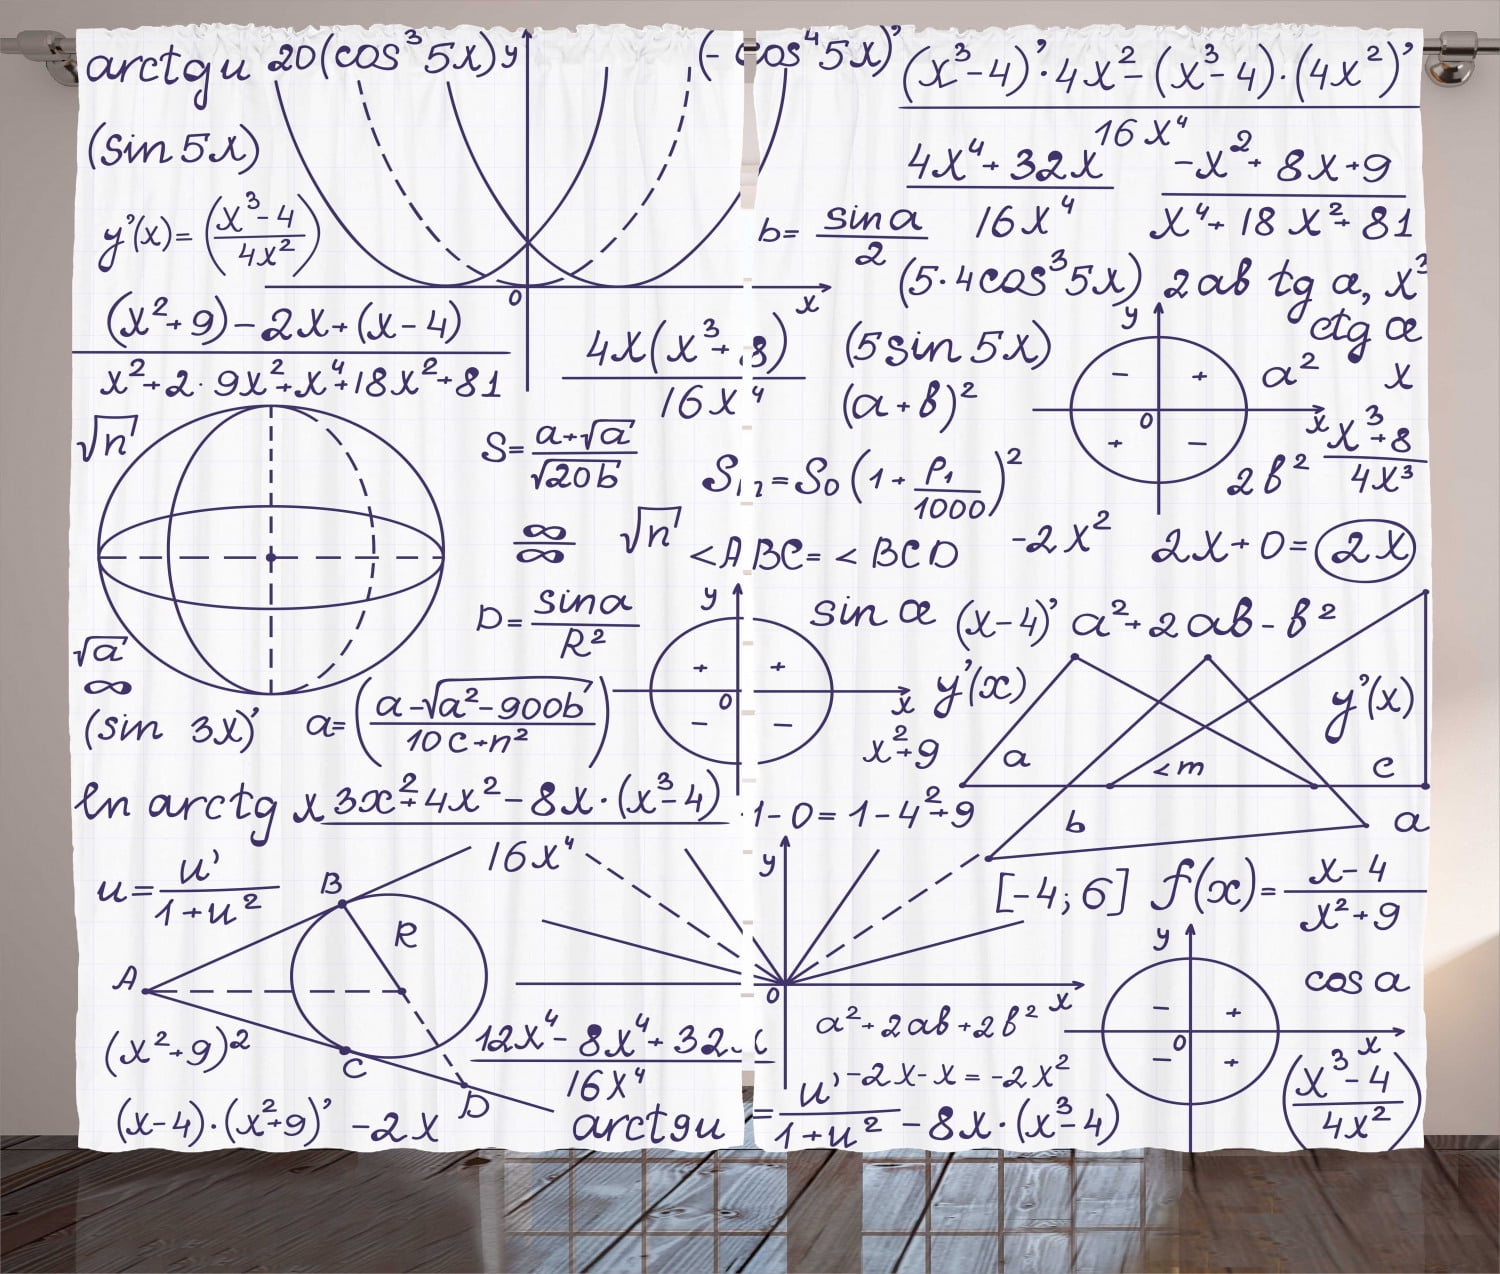 arctgu 20(cos³5x) y (-cos⁴5x)' (x³-4)'·4x²-(x³-4)·(4x²)'
16x⁴
(sin5x)
4x⁴+32x
16x⁴
-x²+8x+9
x⁴+18x²+81
y'(x)=(x³-4
4x²)
b= sina
2
(5·4cos³5x) 2ab tg α, x³
0 x
ctg α
(x²+9)-2x+(x-4)
x²+2·9x²+x⁴+18x²+81
4x(x³+8)
16x⁴
(5sin5x)
y
- +
0
+ -
x
a² x
(a+b)²
x³+8
4x³
2b²
√n
S= a+√a
√20b
Sn=S0(1+P1
1000)²
∞
∞
√n
<ABC=<BCD -2x² 2x+0=2x
D= sina
R²
y
+ +
0
- -
x
sin α (x-4)' a²+2ab-b²
√a
∞
(sin 3x)' a=(a-√a²-900b
10c+n²)
y'(x)
x²+9
a <m c
b a
y'(x)
ln arctg x 3x²+4x²-8x·(x³-4)
16x⁴
1-0=1-4²+9
u= u'
1+u²
B
R
A
C
D
y
0 x
[-4;6] f(x)= x-4
x²+9
y
- +
0
- +
x
cos a
(x²+9)2
12x⁴-8x⁴+32x
16x⁴
a²+2ab+2b²
-2x-x=-2x²
(x³-4
4x²)
(x-4)·(x²+9)' -2x arctgu = u'
1+u² -8x·(x³-4)